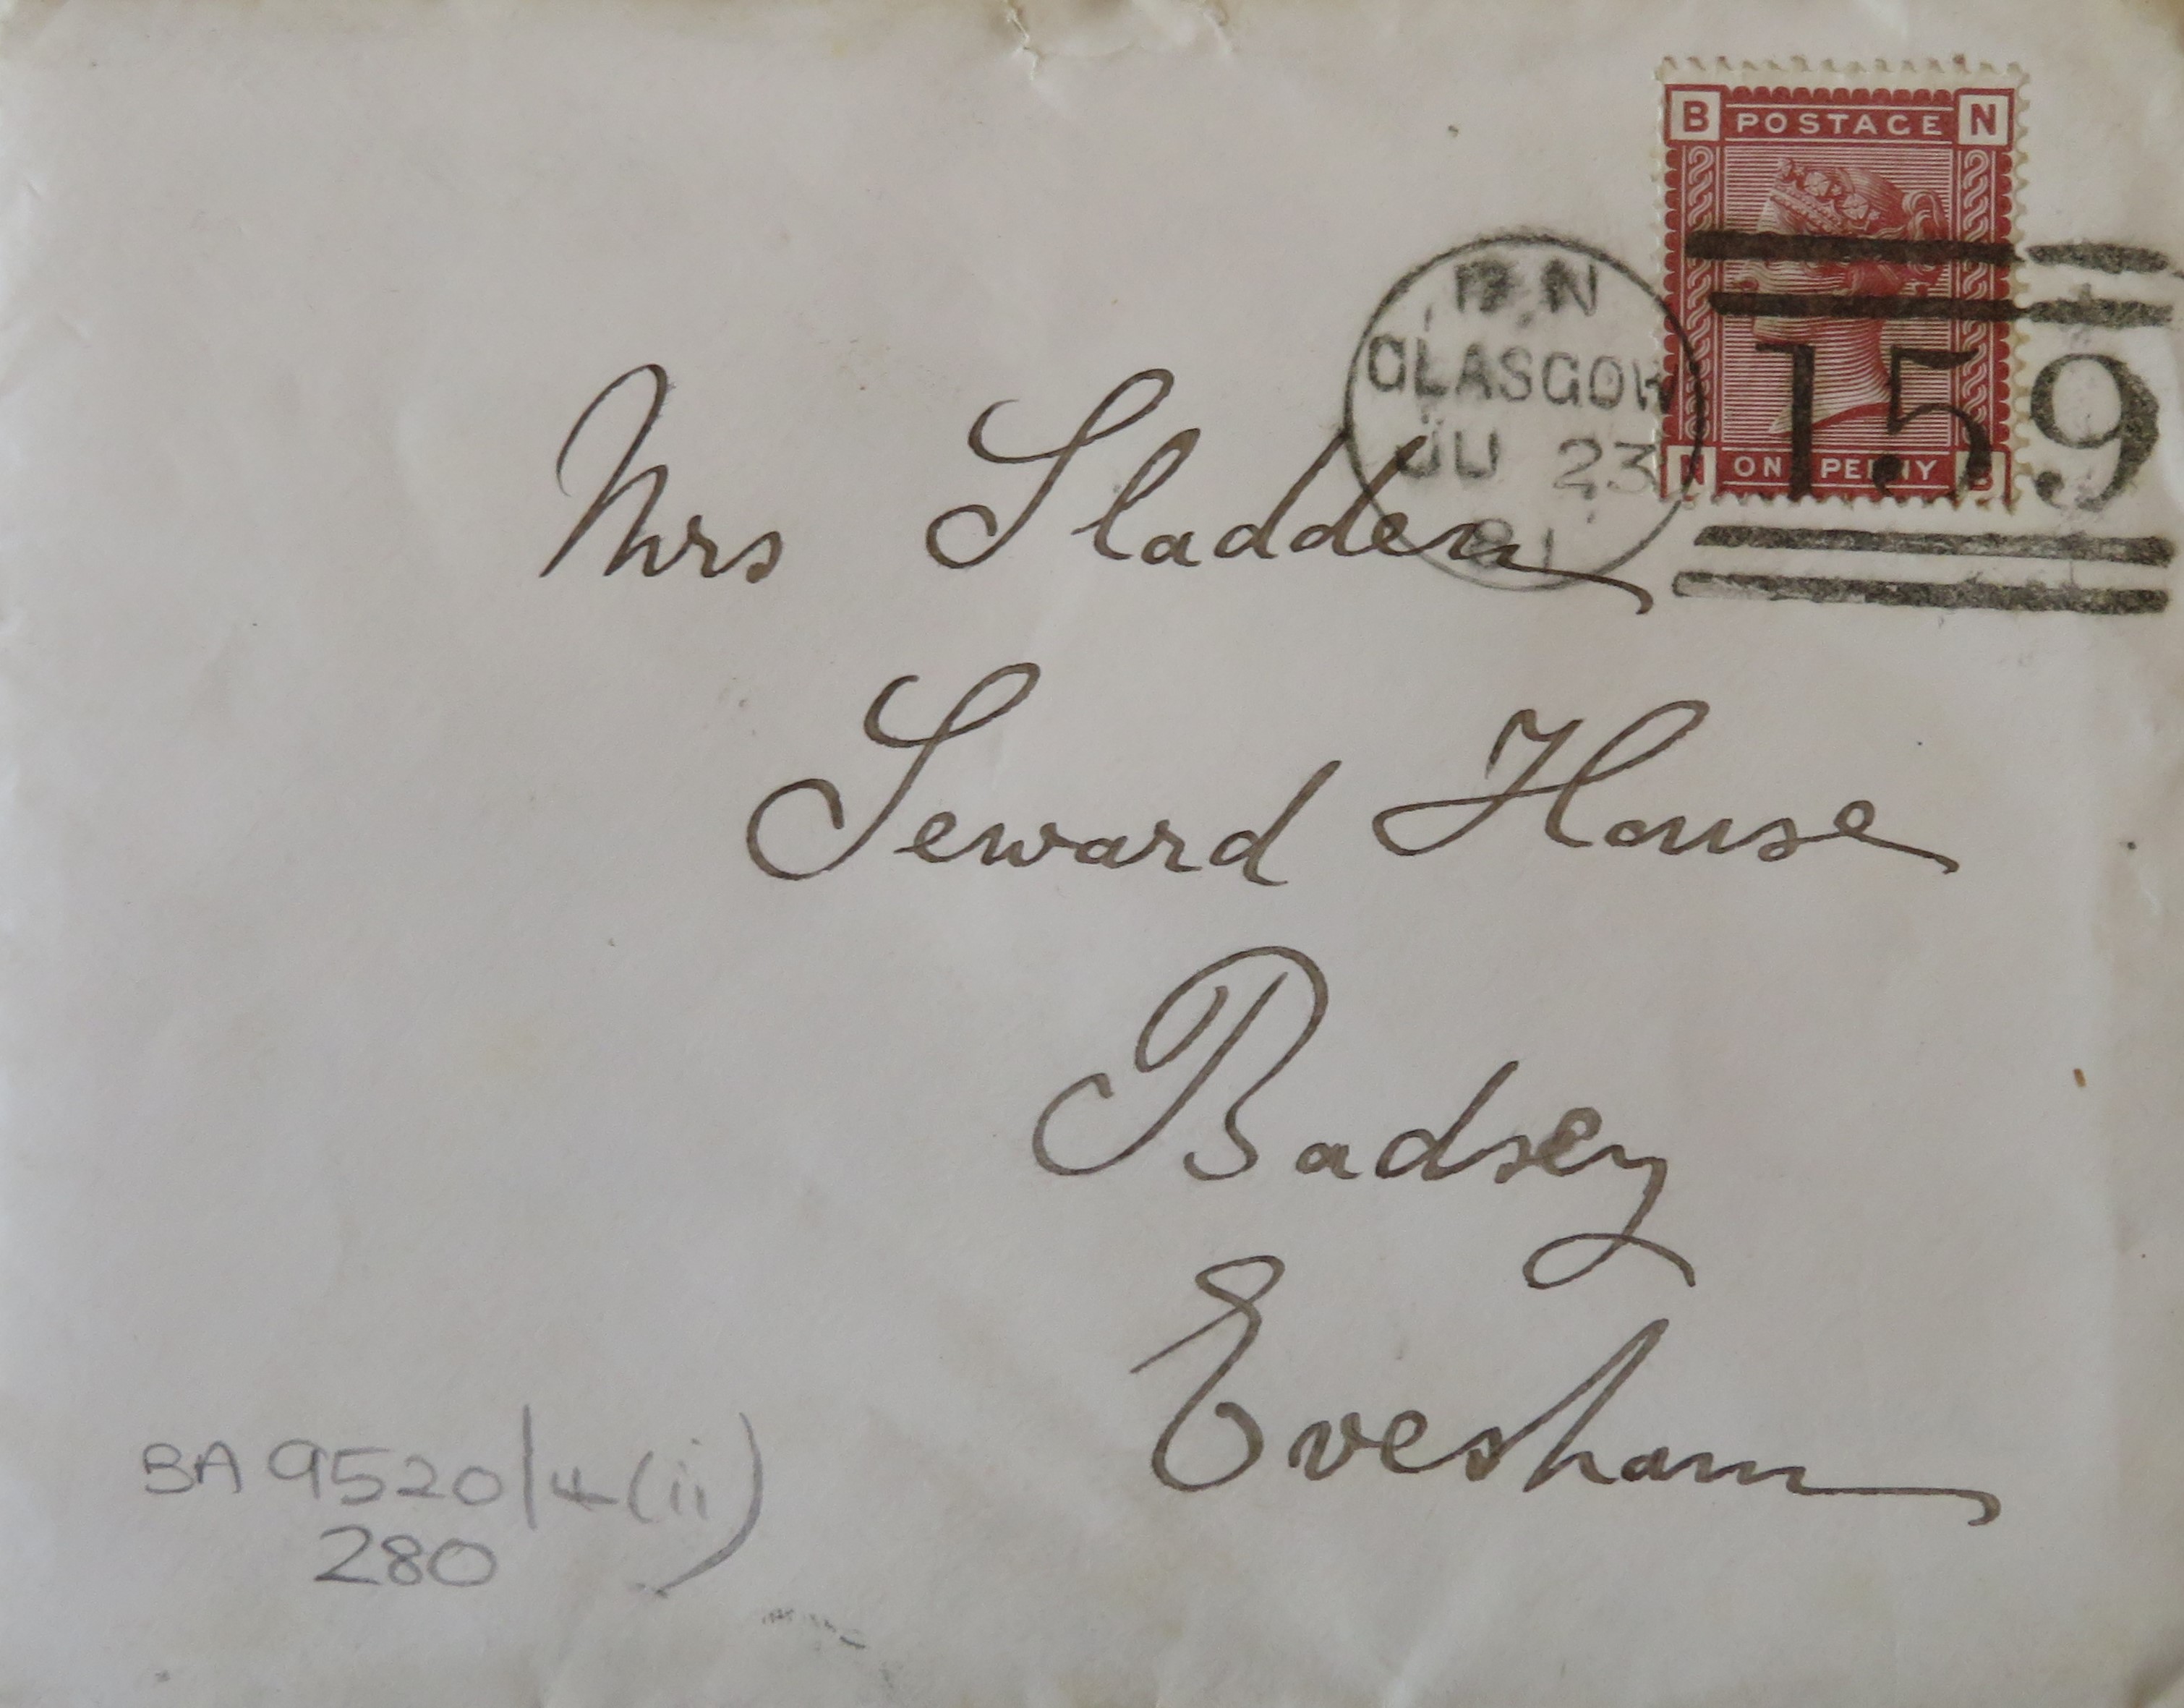 B POSTAGE N
GLASGOW
JU 23
81
159
N ONE PENNY B
Mrs Sladden
Seward House
Badsey
Evesham
BA 9520/4(ii)
280